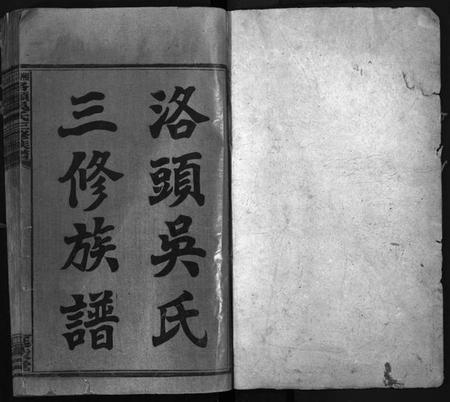 洛頭吳氏
三修族譜